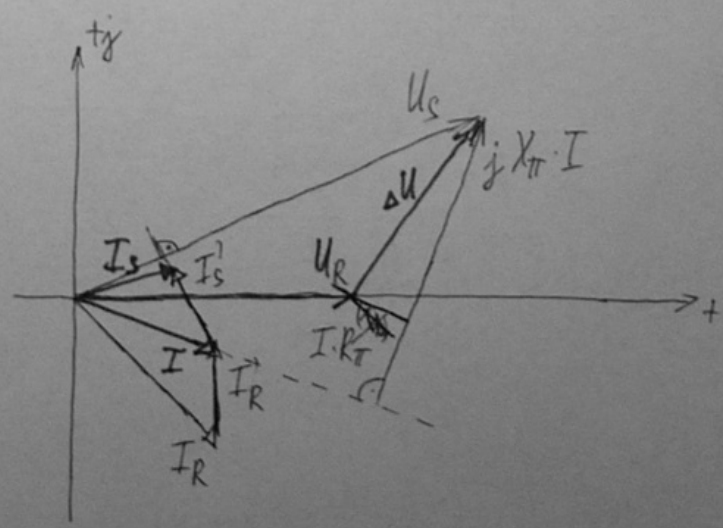 +j
U_S
j X_π · I
ΔU
I_S
I_S'
U_R
+
I·R_π
I
I_R'
I_R